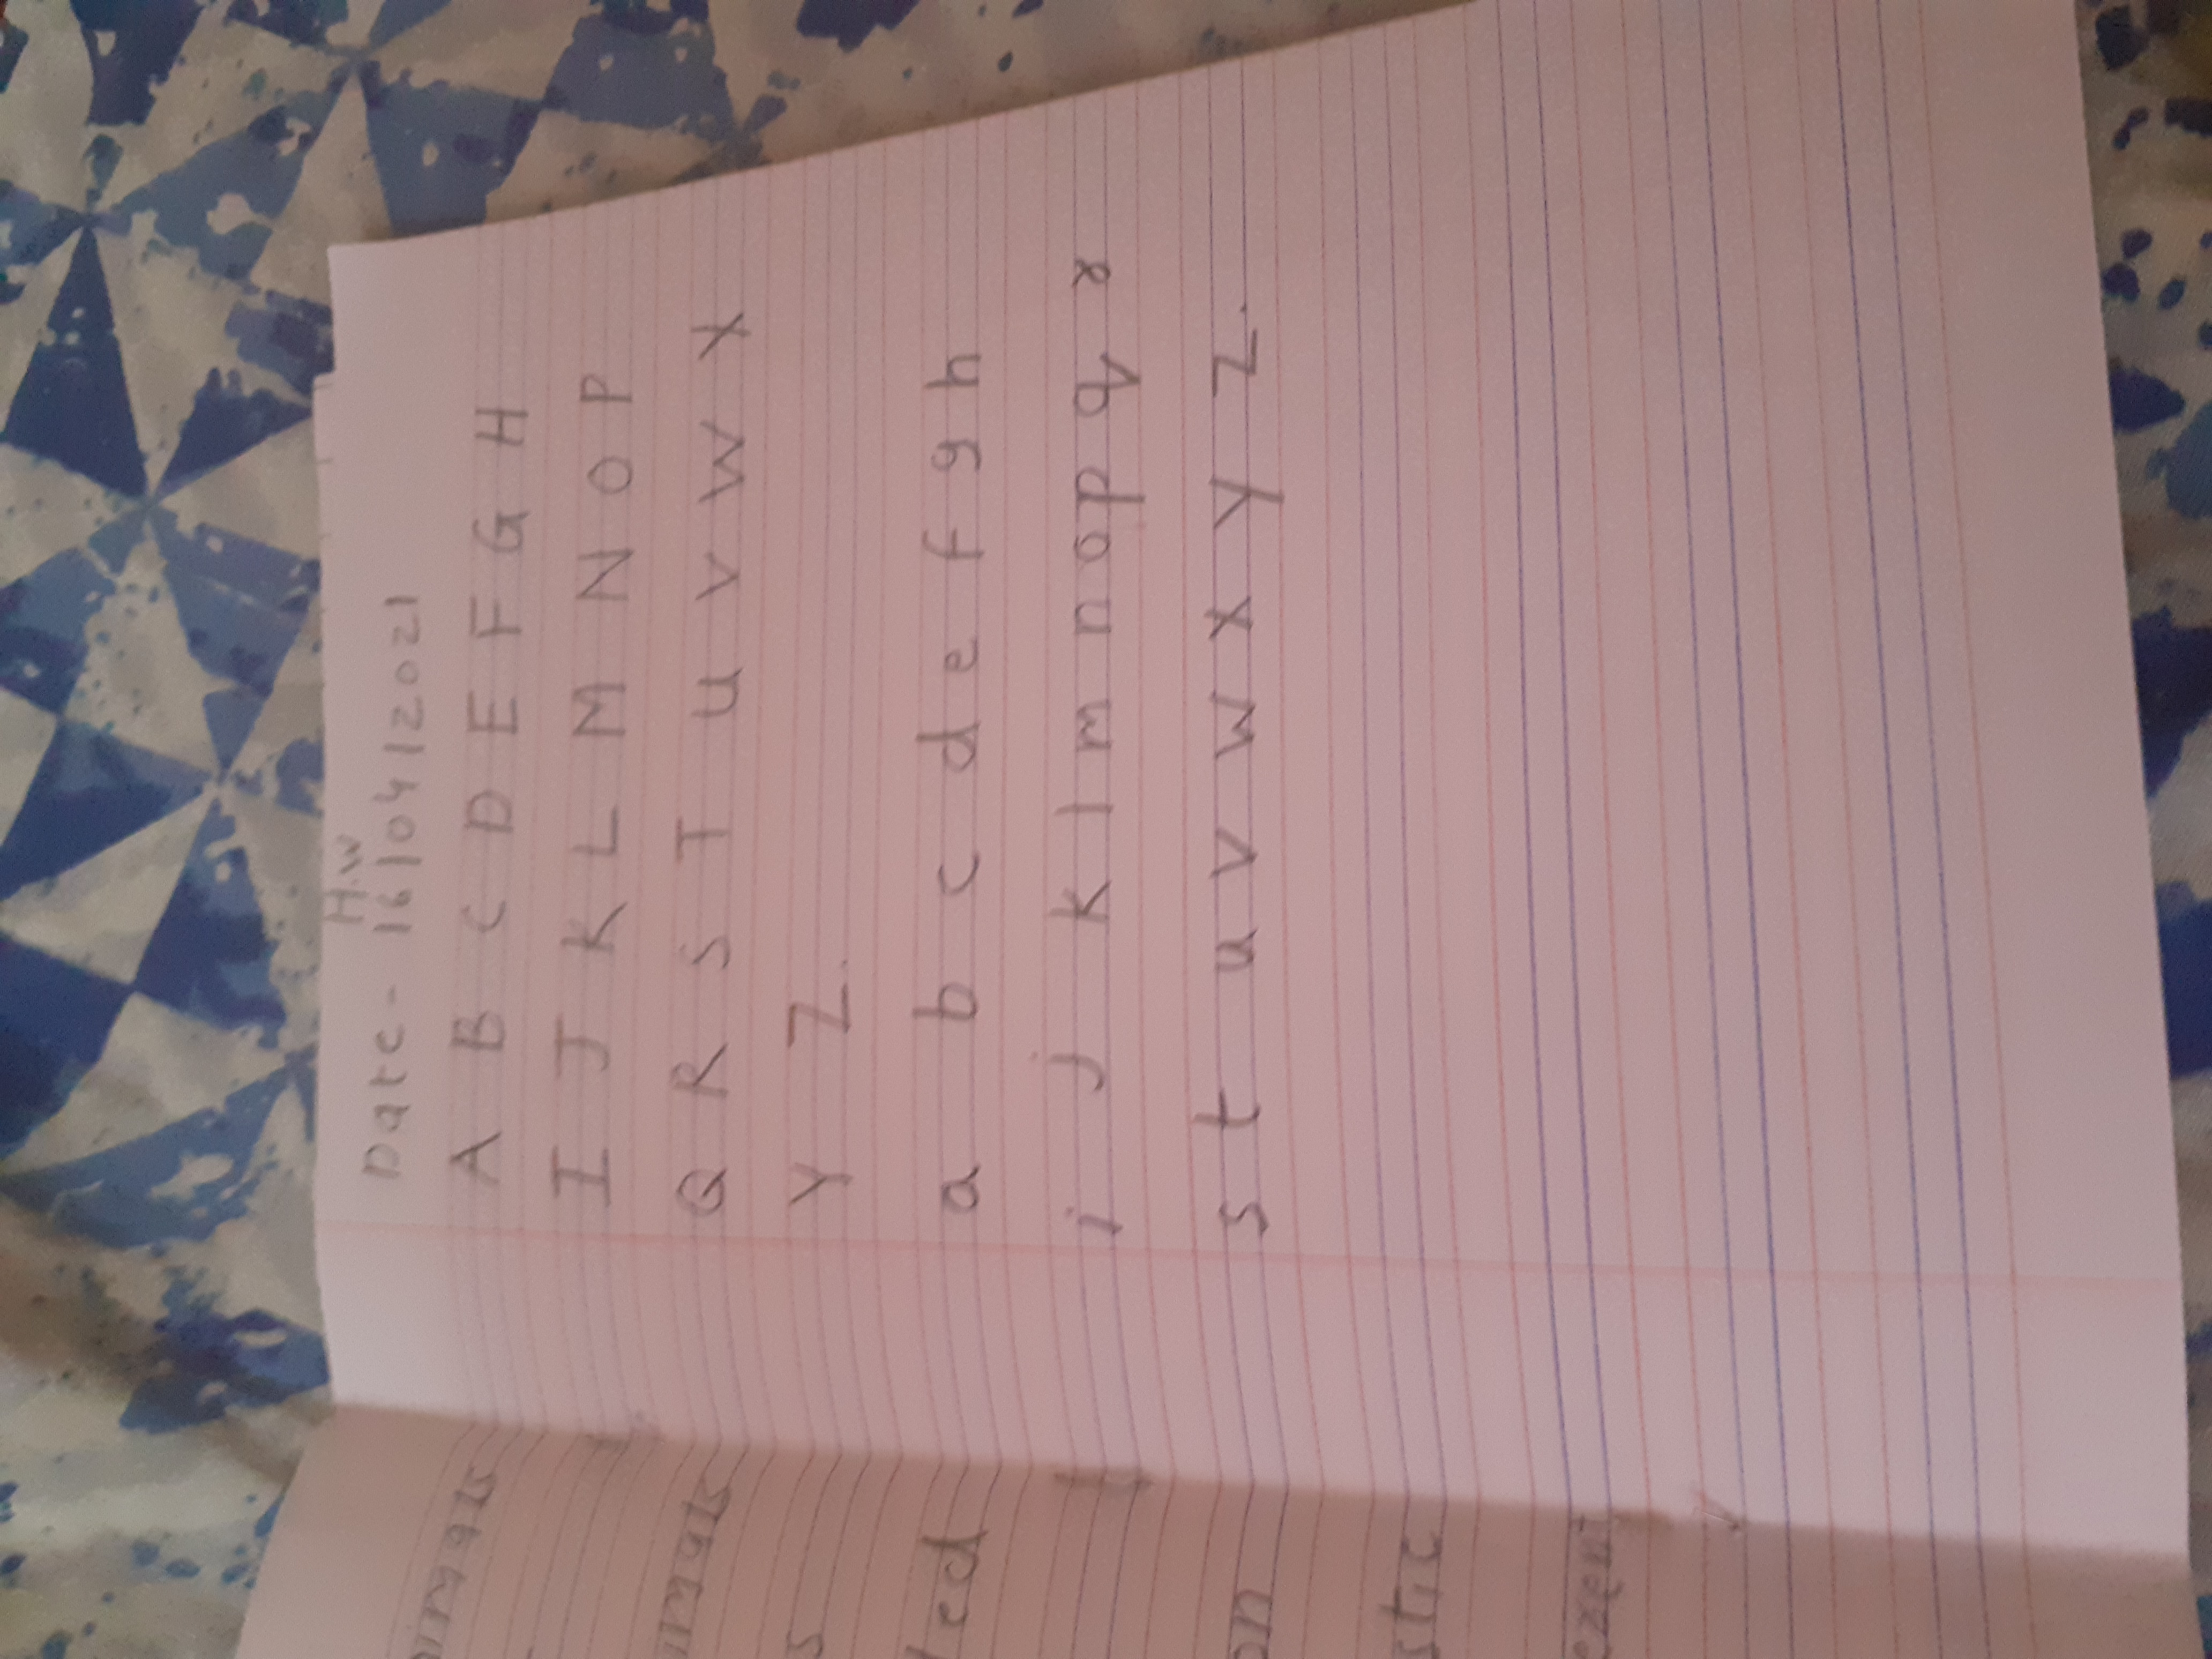 H.W
Date - 16/04/2021
A B C D E F G H
I J K L M N O P
Q R S T U V W X
Y Z.
a b c d e f g h
i j k l m n o p q r
s t u v w x y z.